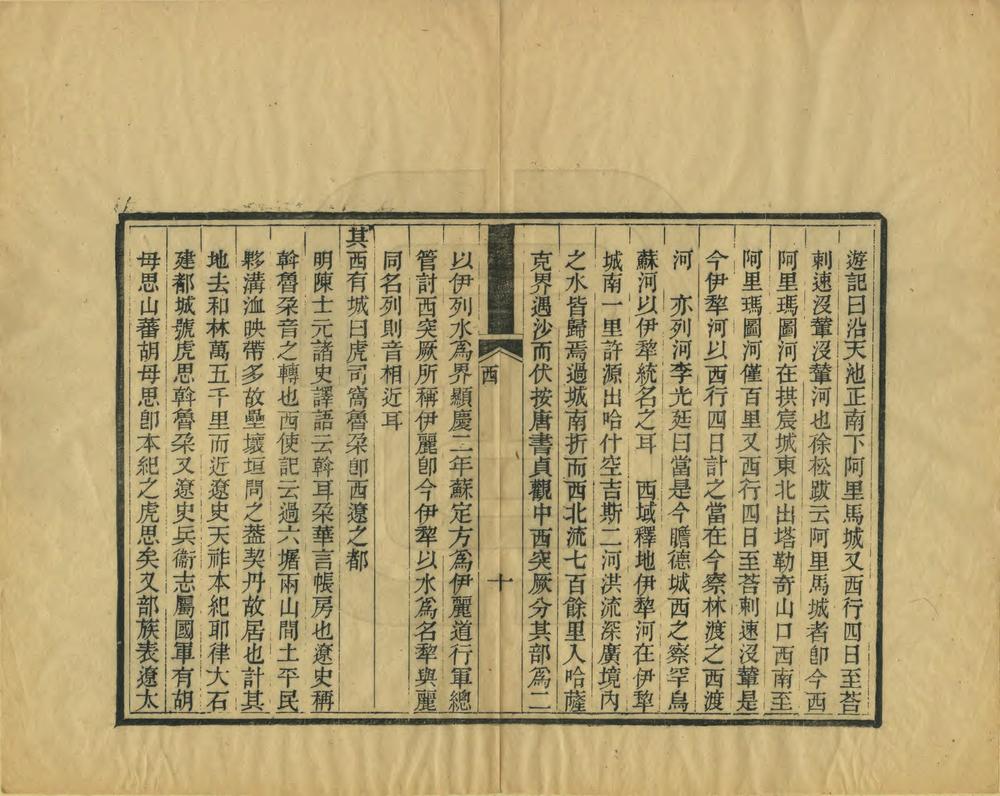 遊記曰沿天池正南下阿里馬城又西行四日至荅
剌速沒輦沒輦河也徐松跋云阿里馬城者卽今西
阿里瑪圖河在拱宸城東北出塔勒奇山口西南至
阿里瑪圖河僅百里又西行四日至荅剌速沒輦是
今伊犂河以西行四日計之當在今察林渡之西渡
河　亦列河李光廷曰當是今瞻德城西之察罕烏
蘇河以伊犂統名之耳　西域釋地伊犂河在伊犂
城南一里許源出哈什空吉斯二河洪流深廣境內
之水皆歸焉過城南折而西北流七百餘里入哈薩
克界遇沙而伏按唐書貞觀中西突厥分其部爲二
西
十
以伊列水爲界顯慶二年蘇定方爲伊麗道行軍總
管討西突厥所稱伊麗卽今伊犂以水爲名犂與麗
同名列則音相近耳
其西有城曰虎司窩魯朶卽西遼之都
明陳士元諸史譯語云斡耳朶華言帳房也遼史稱
斡魯朶音之轉也西使記云過亦堵兩山間土平民
夥溝洫映帶多故壘壞垣問之葢契丹故居也計其
地去和林萬五千里而近遼史天祚本紀耶律大石
建都城號虎思斡魯朶又遼史兵衞志屬國軍有胡
母思山蕃胡母思卽本紀之虎思矣又部族表遼太